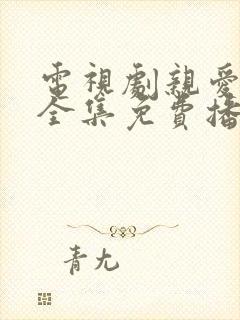 電視劇親愛
全集免費播
青尢